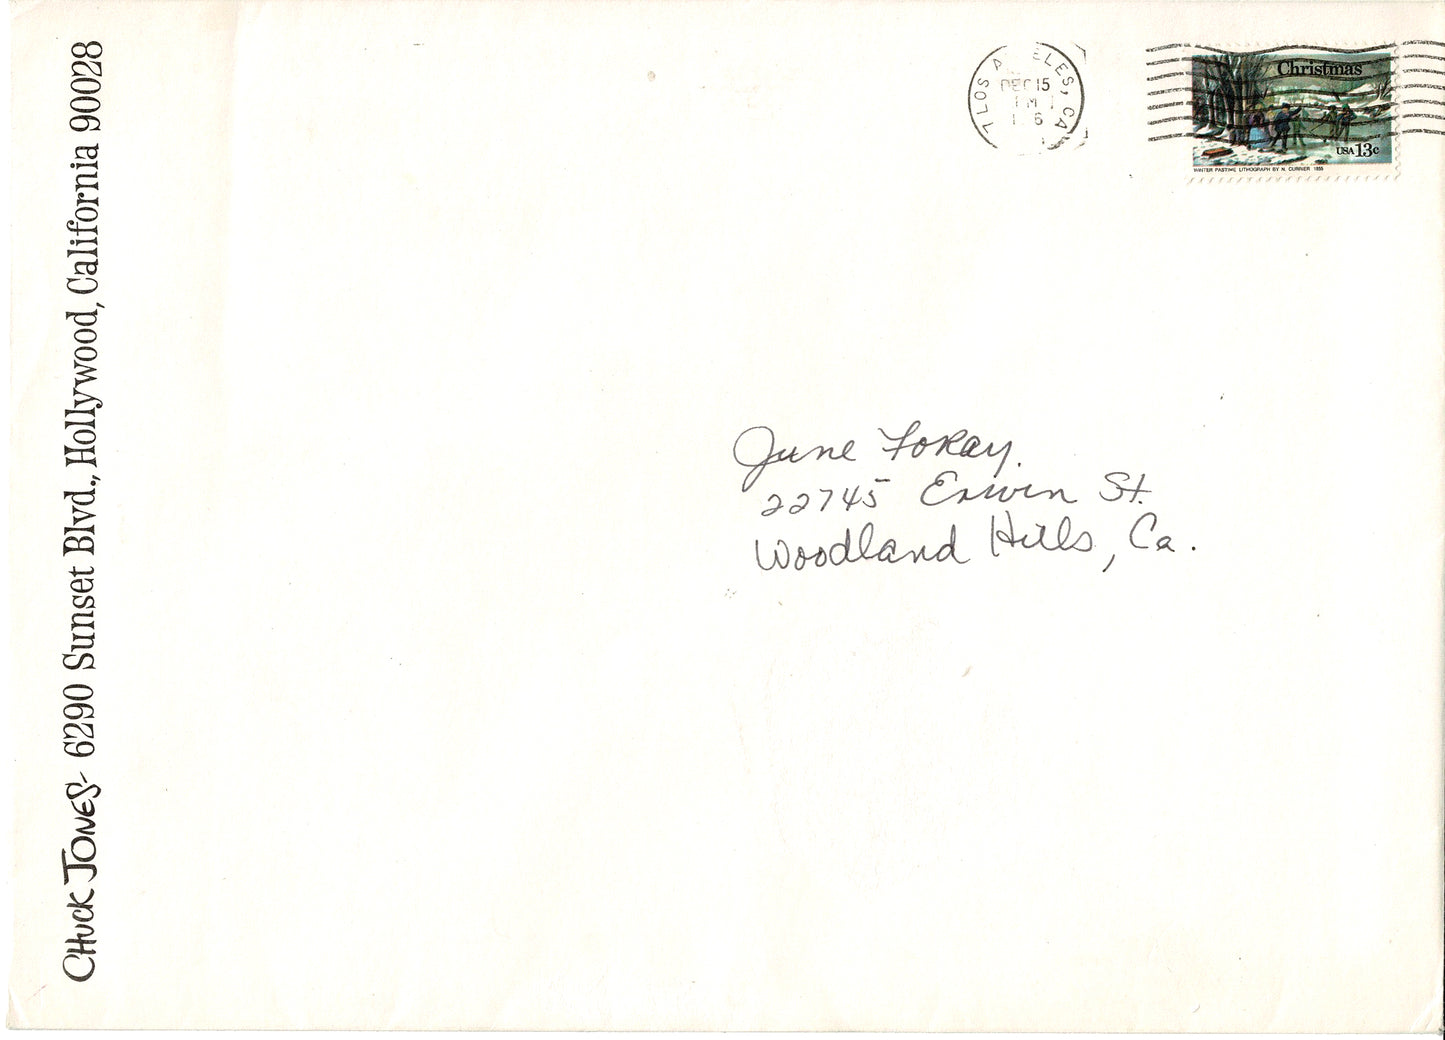 CHUCK JONES- 6290 Sunset Blvd., Hollywood, California 90028
LOS A ELES, CA
DEC 15
Christmas
USA 13c
WINTER PASTIME LITHOGRAPH BY N. CURRIER 1855
June Foray.
22745 Erwin St.
Woodland Hills, Ca.